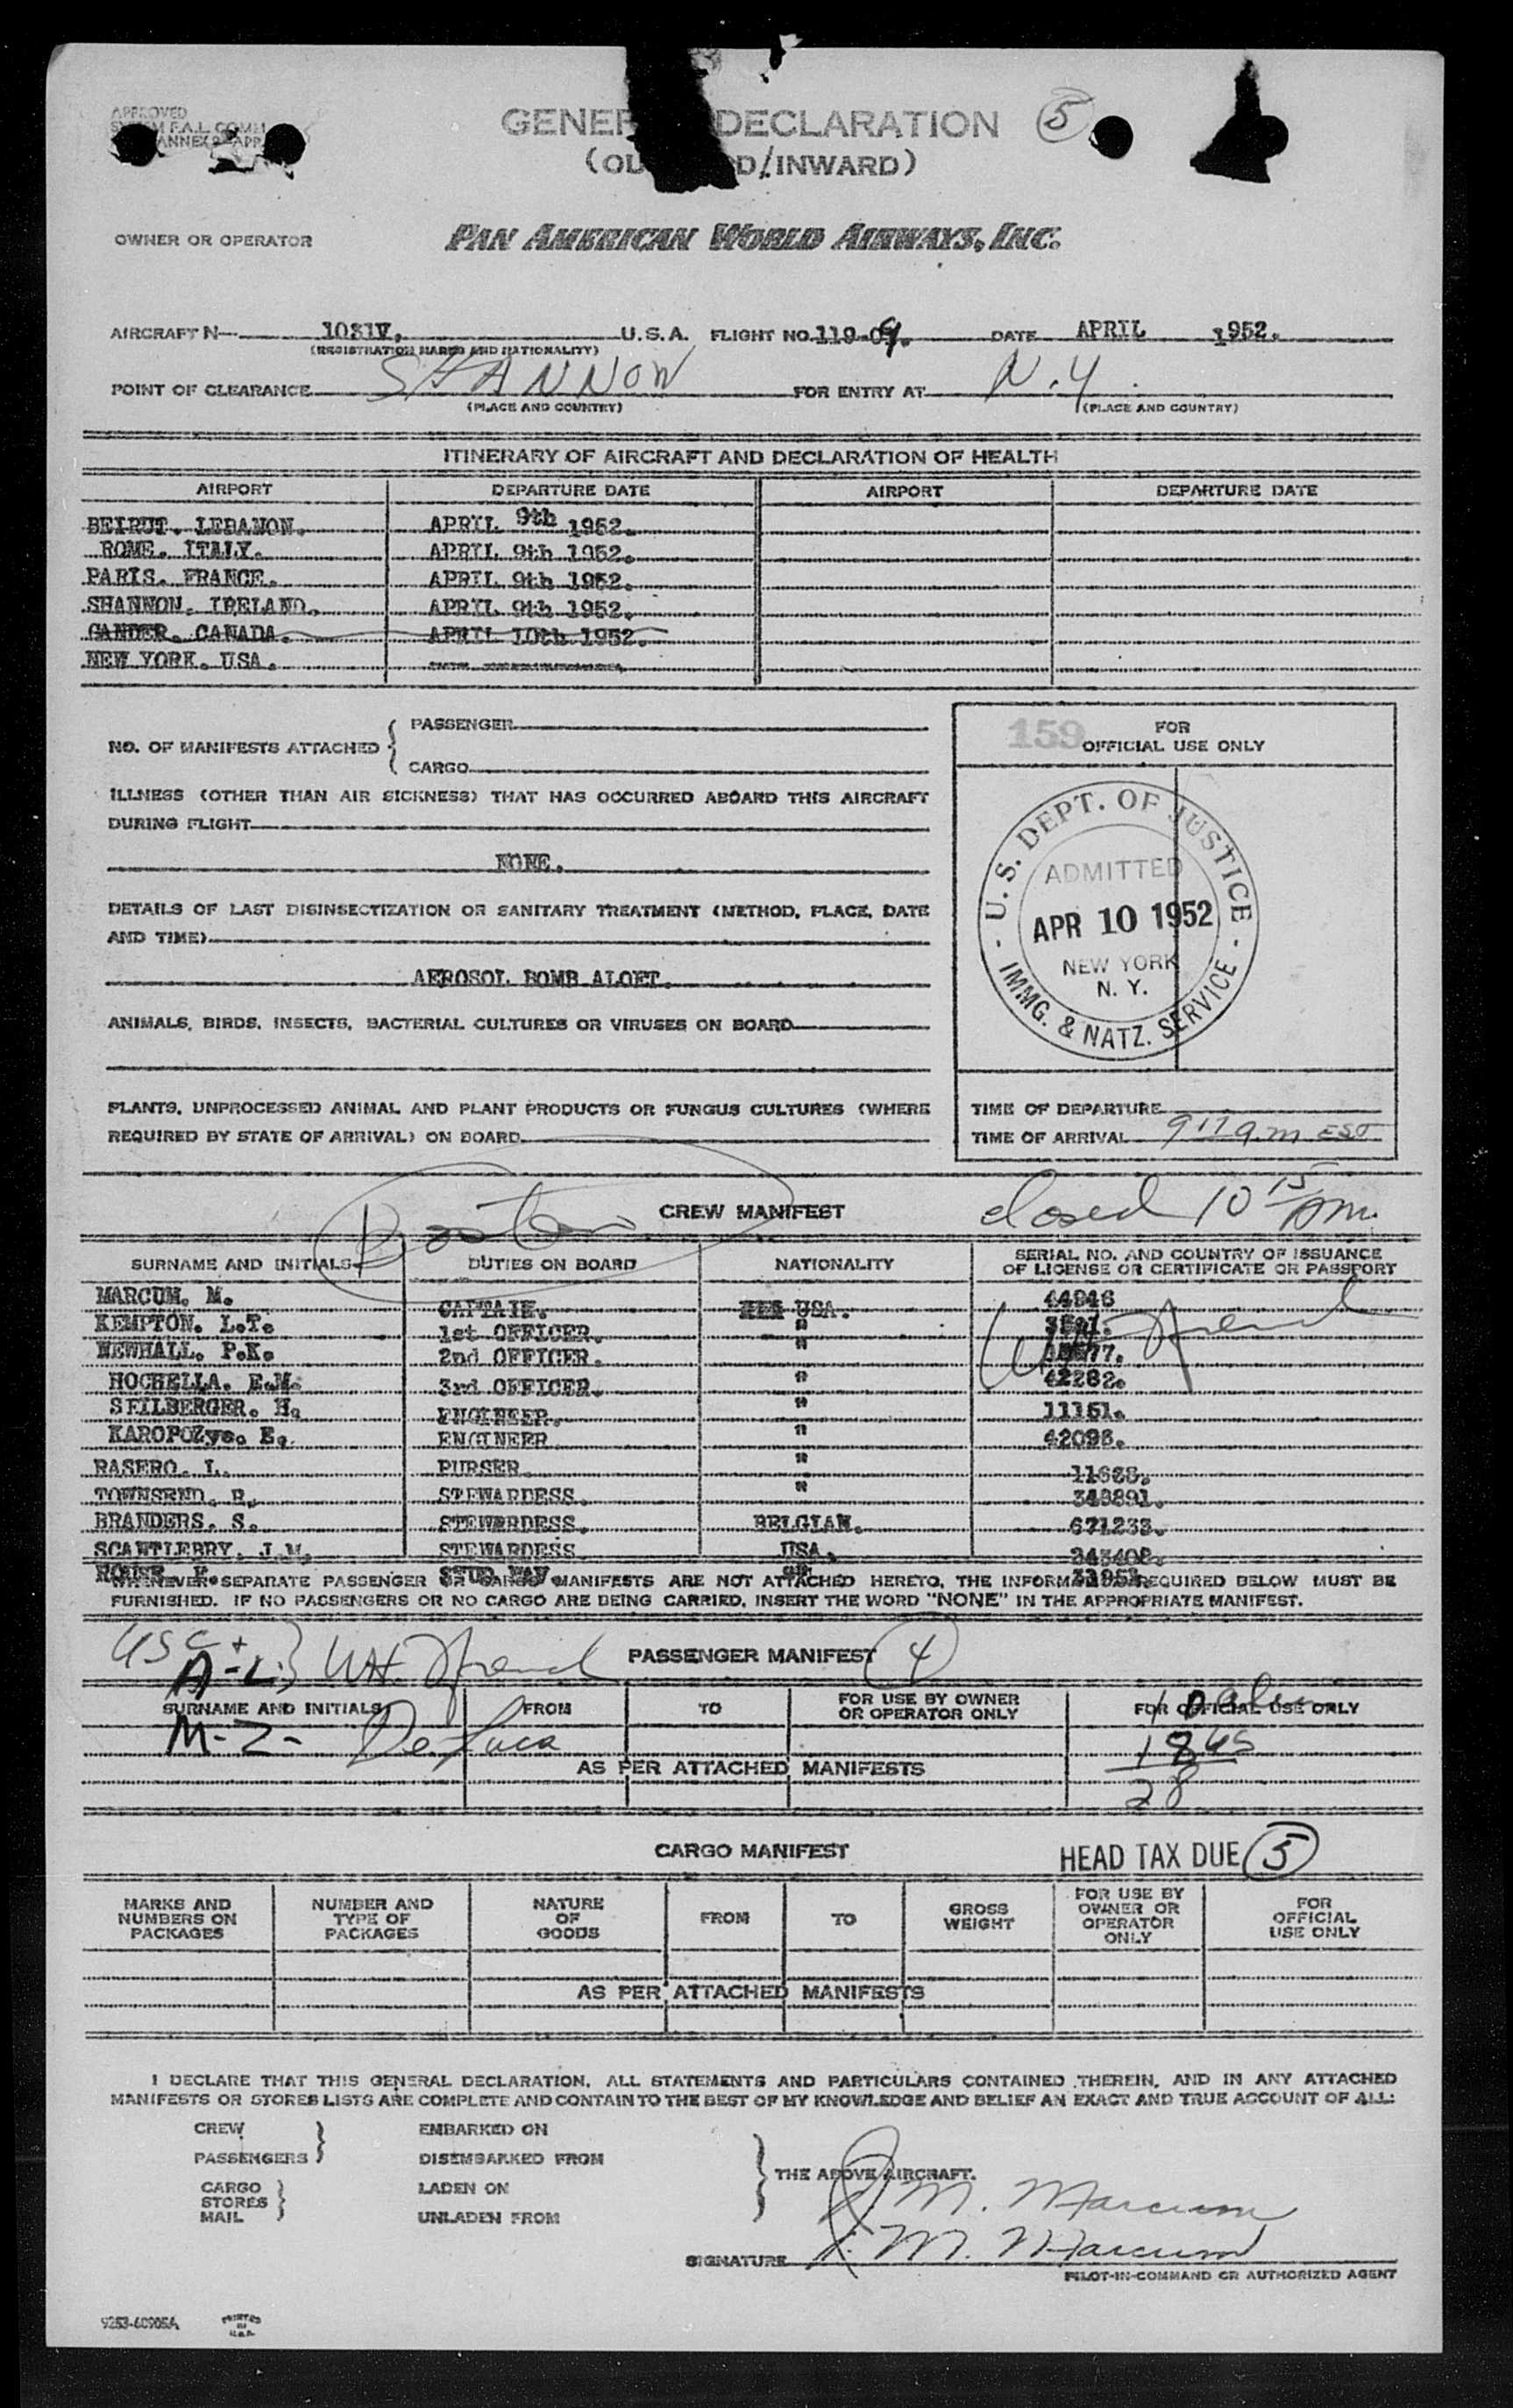 APPROVED
F.A.L. COMM
ANNEX 9 APP.
GENER DECLARATION 5
(OU D/INWARD)
OWNER OR OPERATOR PAN AMERICAN WORLD AIRWAYS, INC.
AIRCRAFT N— 1031V. U.S.A. FLIGHT NO. 119-09. DATE APRIL 1952.
(REGISTRATION MARKS AND NATIONALITY)
POINT OF CLEARANCE SHANNON FOR ENTRY AT N.Y.
(PLACE AND COUNTRY) (PLACE AND COUNTRY)
ITINERARY OF AIRCRAFT AND DECLARATION OF HEALTH
AIRPORT DEPARTURE DATE AIRPORT DEPARTURE DATE
BEIRUT. LEBANON. APRIL 9th 1952.
ROME. ITALY. APRIL 9th 1952.
PARIS. FRANCE. APRIL 9th 1952.
SHANNON. IRELAND. APRIL 9th 1952.
GANDER. CANADA. APRIL 10th 1952.
NEW YORK. USA.
NO. OF MANIFESTS ATTACHED { PASSENGER
CARGO
ILLNESS (OTHER THAN AIR SICKNESS) THAT HAS OCCURRED ABOARD THIS AIRCRAFT
DURING FLIGHT
NONE.
DETAILS OF LAST DISINSECTIZATION OR SANITARY TREATMENT (METHOD, PLACE, DATE
AND TIME)
AEROSOL BOMB ALOFT.
ANIMALS, BIRDS, INSECTS, BACTERIAL CULTURES OR VIRUSES ON BOARD
PLANTS, UNPROCESSED ANIMAL AND PLANT PRODUCTS OR FUNGUS CULTURES (WHERE
REQUIRED BY STATE OF ARRIVAL) ON BOARD
159 FOR
OFFICIAL USE ONLY
U.S. DEPT. OF JUSTICE
ADMITTED
APR 10 1952
NEW YORK
N. Y.
IMMG. & NATZ. SERVICE
TIME OF DEPARTURE
TIME OF ARRIVAL 9:17 a.m EST
Boston CREW MANIFEST closed 10 15 pm.
SURNAME AND INITIALS DUTIES ON BOARD NATIONALITY SERIAL NO. AND COUNTRY OF ISSUANCE
OF LICENSE OR CERTIFICATE OR PASSPORT
MARCUM. M. CAPTAIN. USA. 44946
KEMPTON. L.T. 1st OFFICER. "
NEWHALL. P.K. 2nd OFFICER. "
HOCHELLA. E.M. 3rd OFFICER. " 42282.
SEILBERGER. H. ENGINEER. " 11151.
KAROPOZys. E. ENGINEER " 42096.
RASERO. L. PURSER " 11688.
TOWNSEND. R. STEWARDESS. " 348891.
BRANDERS. S. STEWARDESS. BELGIAN. 671233.
SCANTLEBRY. J.M. STEWARDESS USA. 343408.
WHENEVER SEPARATE PASSENGER OR CARGO MANIFESTS ARE NOT ATTACHED HERETO, THE INFORMATION REQUIRED BELOW MUST BE
FURNISHED. IF NO PASSENGERS OR NO CARGO ARE BEING CARRIED, INSERT THE WORD "NONE" IN THE APPROPRIATE MANIFEST.
USC + PASSENGER MANIFEST 4
A-L
SURNAME AND INITIALS FROM TO FOR USE BY OWNER
OR OPERATOR ONLY FOR OFFICIAL USE ONLY
M-Z- De Luca 10 alien
18 US
AS PER ATTACHED MANIFESTS
28
CARGO MANIFEST HEAD TAX DUE 5
MARKS AND
NUMBERS ON
PACKAGES NUMBER AND
TYPE OF
PACKAGES NATURE
OF
GOODS FROM TO GROSS
WEIGHT FOR USE BY
OWNER OR
OPERATOR
ONLY FOR
OFFICIAL
USE ONLY
AS PER ATTACHED MANIFESTS
I DECLARE THAT THIS GENERAL DECLARATION, ALL STATEMENTS AND PARTICULARS CONTAINED THEREIN, AND IN ANY ATTACHED
MANIFESTS OR STORES LISTS ARE COMPLETE AND CONTAIN TO THE BEST OF MY KNOWLEDGE AND BELIEF AN EXACT AND TRUE ACCOUNT OF ALL:
CREW EMBARKED ON
PASSENGERS } DISEMBARKED FROM
THE ABOVE AIRCRAFT.
CARGO LADEN ON
STORES }
MAIL UNLADEN FROM
M. Marcum
SIGNATURE J. M. Marcum
PILOT-IN-COMMAND OR AUTHORIZED AGENT
9253-60905A PRINTED
IN
U.S.A.